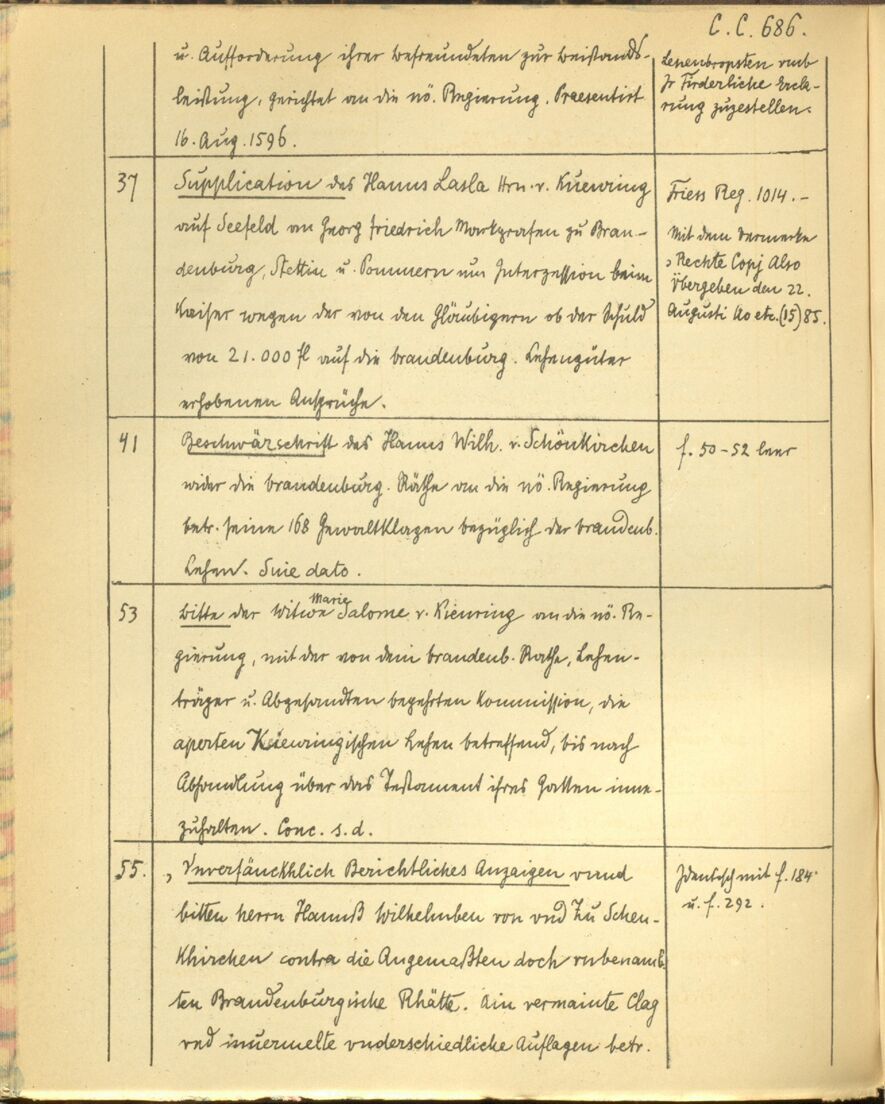 C. C. 686.
u. Aufforderung ihrer befreundeten zur Beistands-
leistung, gerichtet an die nö. Regierung. Praesentirt
16. Aug. 1596.
Lehenbropsten vmb
Jr Fürderliche Ercla-
rung zuzestellen.
37
Supplication des Hanns Lasla Hrn. v. Kuenring
auf Seefeld an Georg Friedrich Markgrafen zu Bran-
denburg, Stettin u. Pommern um Interzession beim
Kaiser wegen der von den Gläubigern ob der Schuld
von 21.000 fl auf die brandenburg. Lehengüter
erhobenen Ansprüche.
Friess Reg. 1014. -
Mit dem Vermerke
„Rechte Copj Also
Vbergeben den 22.
Augusti Ao etc. (15)85.
41
Beschwärschrift des Hanns Wilh. v. Schönkirchen
wider die brandenburg. Räthe an die nö. Regierung
betr. seine 168 Gewaltklagen bezüglich der brandenb.
Lehen. Sine dato.
f. 50-52 leer
53
Bitte der Witwe Marie Salome v. Kienring an die nö. Re-
gierung, mit der von dem brandenb. Rathe, Lehen-
träger u. Abgesandten begehrten Kommission, die
aperten Kuenringischen Lehen betreffend, bis nach
Abhandlung über das Testament ihres Gatten inne-
zuhalten. Conc. s. d.
55.
„Vnverfänckhlich Berichtliches Anzaigen vnnd
bitten herrn Hannß Wilhelmben von vnd Zu Schen-
Khirchen contra die Angemaßten doch vnbenamb-
ten Brandenburgische Rhätte. Ain vermainte Clag
vnd inuermelte vnderschiedliche Auflagen betr.
Identisch mit f. 184
u. f. 292.